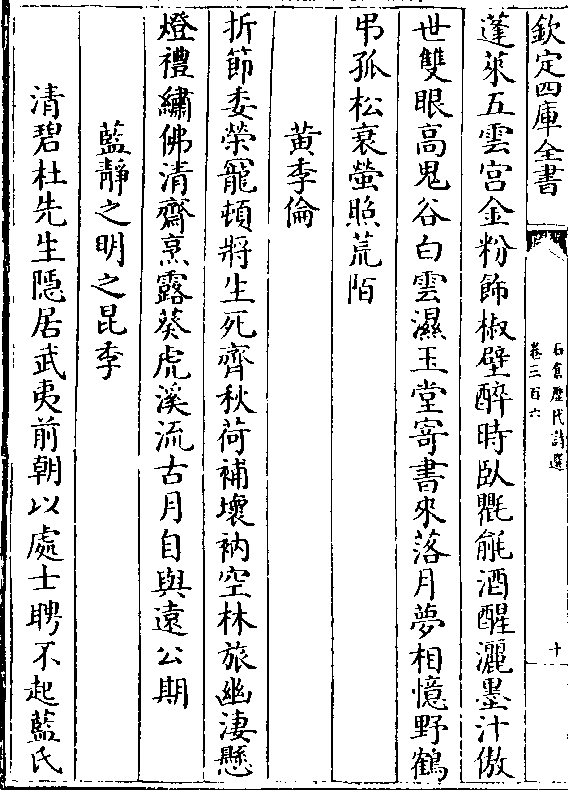 欽定四庫全書
石倉歷代詩選
卷三百六
十
蓬萊五雲宮金粉飾椒壁醉時臥氍毹酒醒灑墨汁倣
世雙眼高鬼谷白雲濕玉堂寄書來落月夢相憶野鶴
弔孤松衰螢照荒陌
黄季倫
折節委榮寵頓將生死齊秋荷補壞衲空林旅幽淒懸
燈禮繡佛清齋烹露葵虎溪流古月自與遠公期
藍靜之明之昆季
清碧杜先生隱居武夷前朝以處士聘不起藍氏